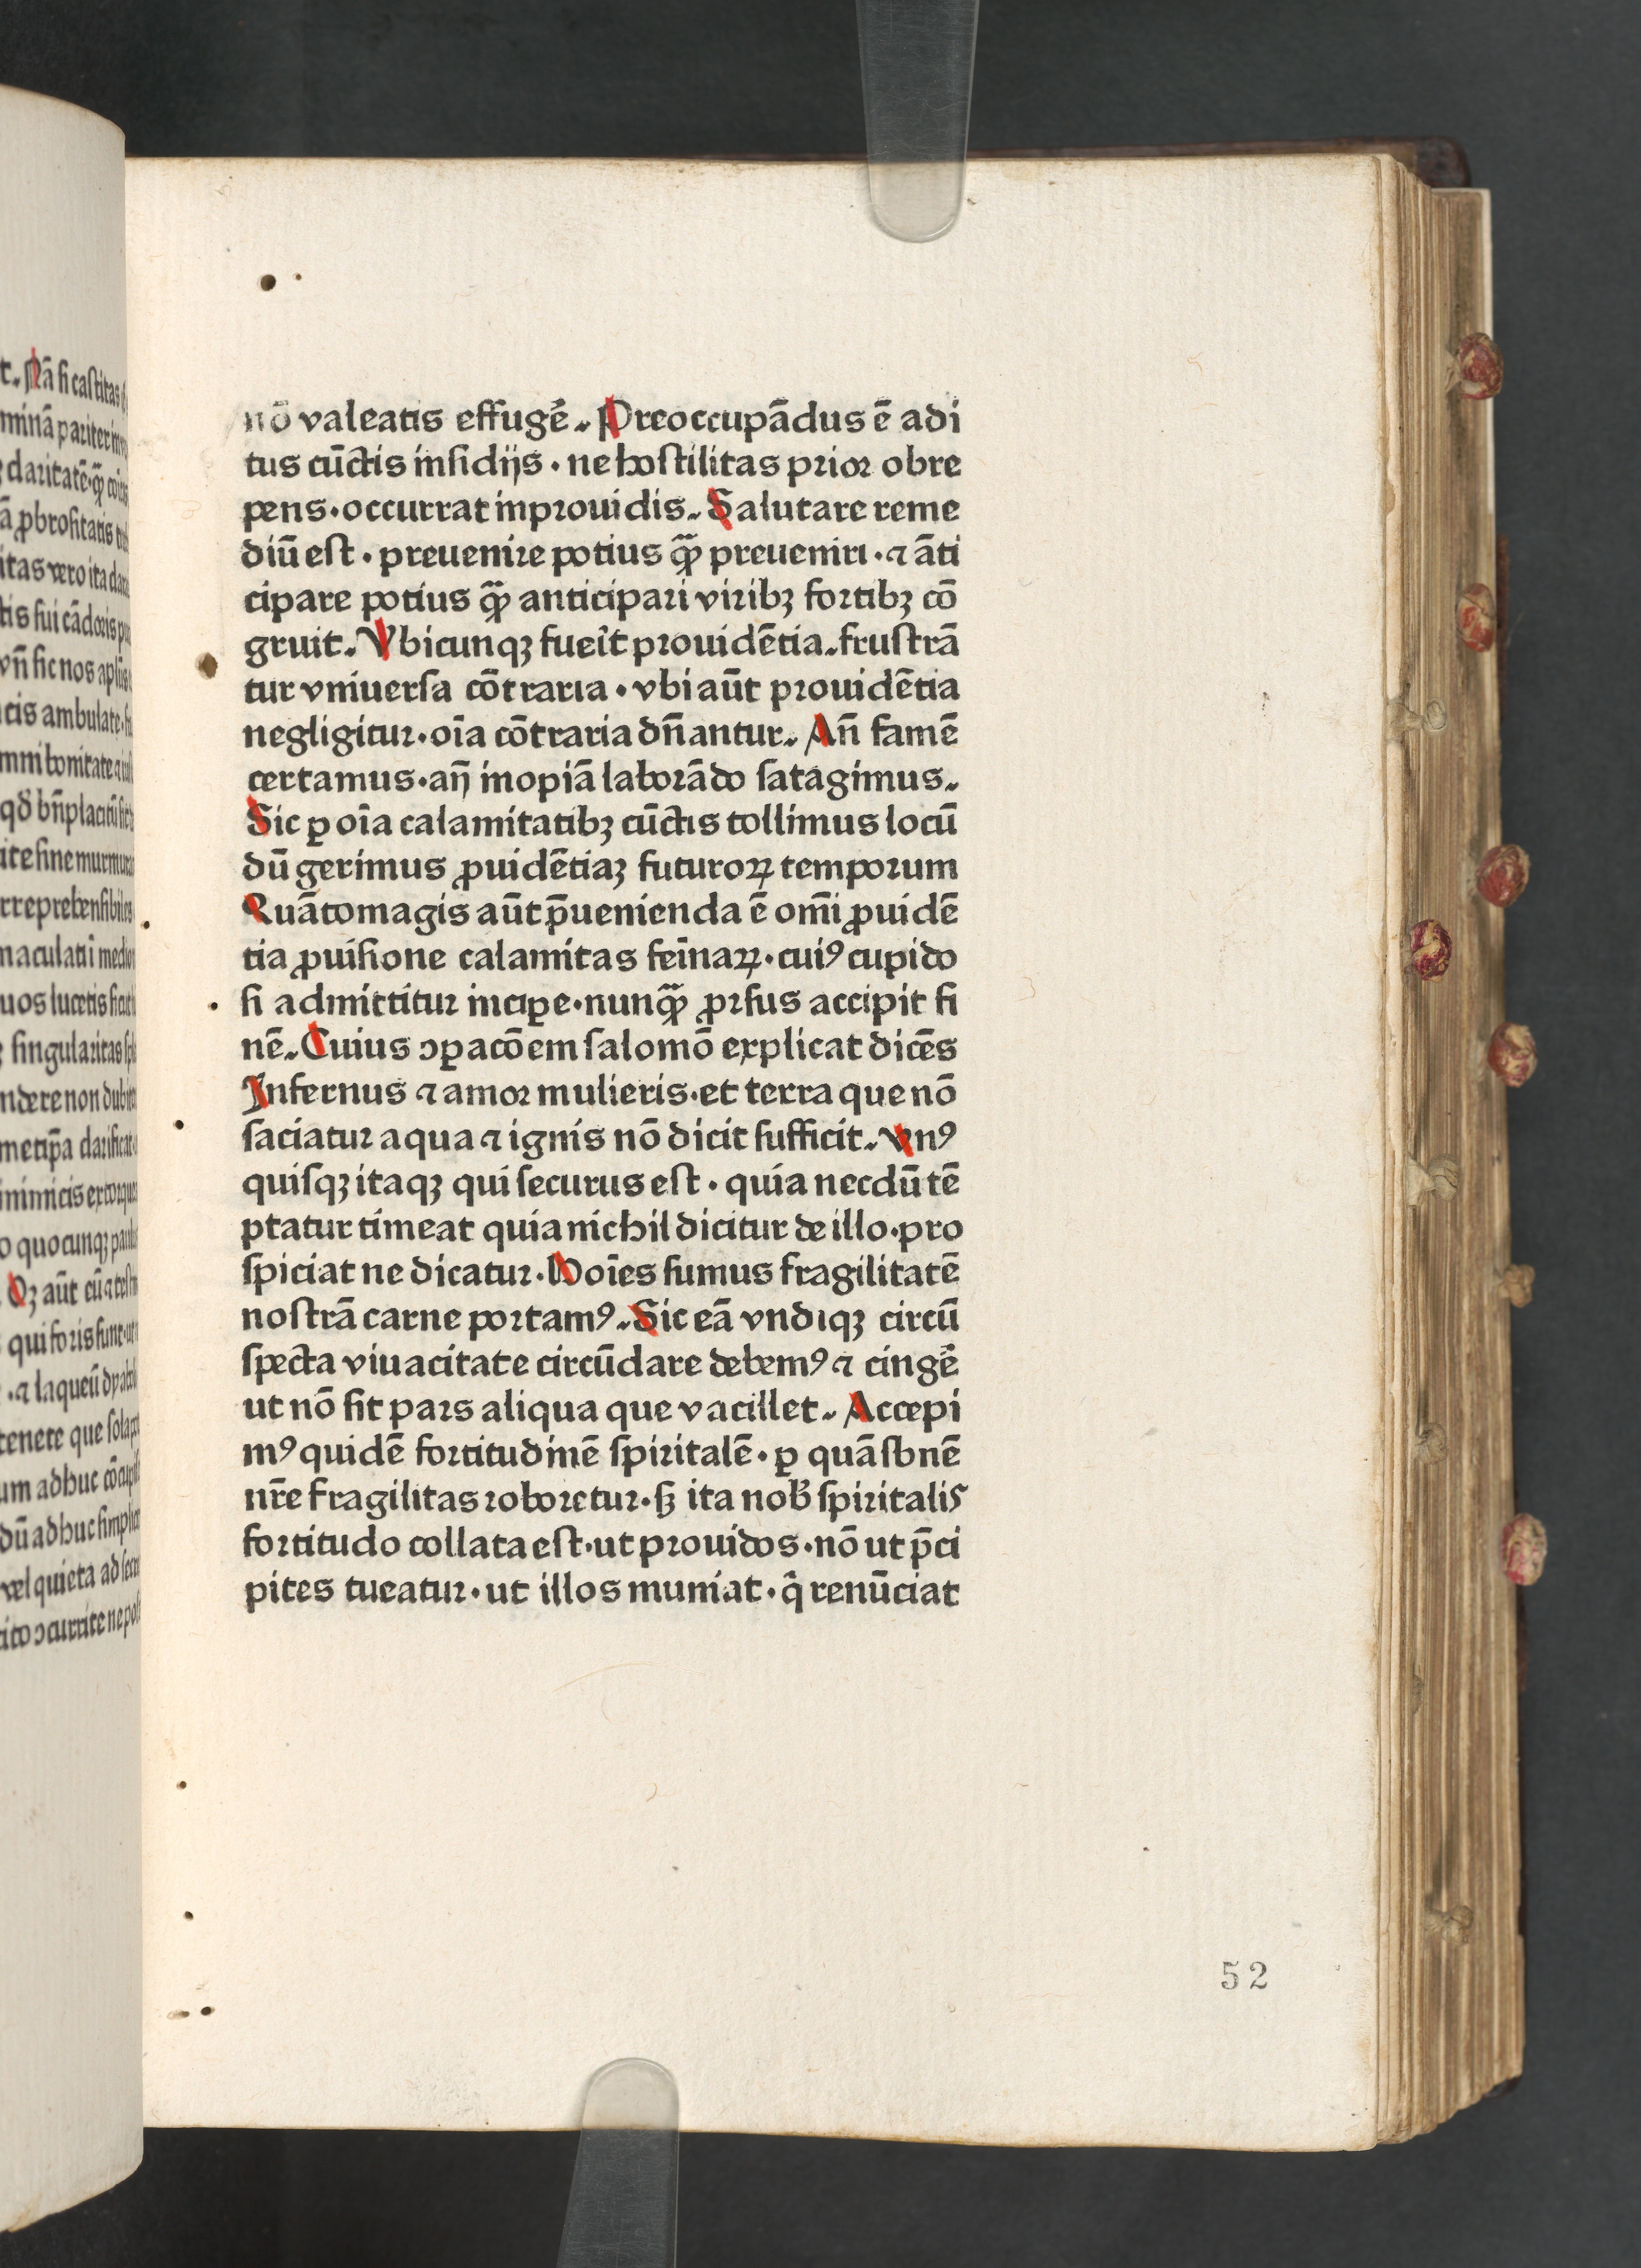 nō valeatis effugē. Preoccupādus ē adi
tus cūctis insidijs · ne hostilitas prior obre
pens · occurrat inprouidis. Salutare reme
diū est · preuenire potius qᷓꝫ preueniri · ⁊ āti
cipare potius qᷓꝫ anticipari viribꝫ fortibꝫ cō
gruit. Vbicunqꝫ fueīt prouidētia. frustrā
tur vniuersa cōtraria · vbi aūt prouidētia
negligitur · oīa cōtraria dn̄antur. An̄ famē
certamus · an̄ inopiā laborādo satagimus.
Sic ꝑ oīa calamitatibꝫ cūctis tollimus locū
dū gerimus ꝓuidētiaꝫ futuroꝝ temporum
Quāto magis aūt p̄uenienda ē omī ꝓuidē
tia ꝓuisione calamitas feīnaꝝ · cuiꝰ cupido
si admittitur incipe · nunqᷓꝫ ꝓrsus accipit fi
nē. Cuius ɔꝑacōem salomō explicat dicēs
Infernus ⁊ amor mulieris · et terra que nō
saciatur aqua ⁊ ignis nō dicit sufficit. Vnꝰ
quisqꝫ itaqꝫ qui securus est · quia necdū tē
ptatur timeat quia nichil dicitur de illo · pro
spiciat ne dicatur · Hoīes sumus fragilitatē
nostrā carne portamꝰ. Sic eā vndiqꝫ circū
specta viuacitate circūdare debemꝰ ⁊ cingē
ut nō sit pars aliqua que vacillet. Accepi
mꝰ quidē fortitudinē spiritalē · ꝑ quā sbnē
nr̄e fragilitas roboretur · sꝫ ita nob̄ spiritalis
fortitudo collata est · ut prouidos · nō ut p̄ci
pites tueatur · ut illos muniat · q̄ renūciat
52